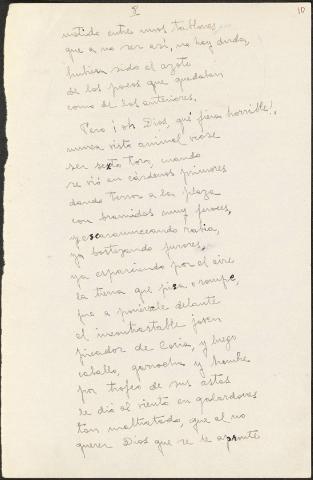 V
10
metido entre unos tablones...
que a no ser así, no hay duda,
hubiera sido el azote
de los pocos que quedaban
como de los anteriores.
Pero ¡oh Dios, qué fiera horrible!
nunca visto animal viose
ser sexto toro, cuando
se vió en cárdenos primores
dando terror a la plaza
con bramidos muy feroces,
ya escaramuceando rabia,
ya bostezando furores,
ya esparciendo por el aire
la tierra que pisa o rompe,
fue a ponérsele delante
el incontrastable joven
picador de Coria, y luego
caballo, garrocha y hombre
por trofeo de sus astas
le dió al viento en galardones
tan maltratado, que al no
querer Dios que se le apronte